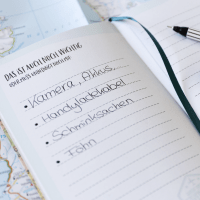 DAS IST AUCH NOCH WICHTIG
Kamera, Akkus, ...
Handyladekabel
Schminksachen
Föhn